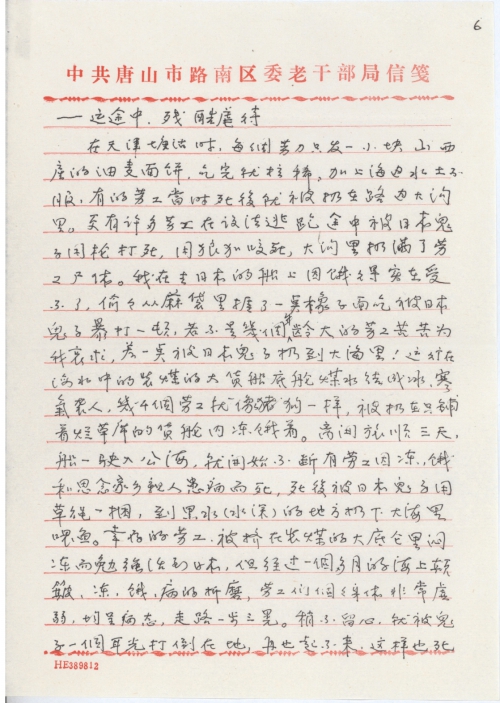 6
中共唐山市路南区委老干部局信笺
一运途中、残酷虐待
在天津塘沽时，每個劳力只发一小块山西
产的油麦面饼，吃完就拉稀，加上海边水土不
服，有的劳工當时死後就被扔在路边大沟
里。更有许多劳工在设法逃跑途中被日本鬼
子用枪打死，用狼狗咬死，大沟里扔满了劳
工尸体。我在去日本的船上因饿得实在受
不了，偷々从麻袋里握了一点橡子面吃被日本
鬼子暴打一顿，若不是幾個年龄大的劳工苦苦为
我哀求，差一点被日本鬼子扔到大海里！这行在
海水中的装煤的大货船底舱煤水结成冰，寒
氣袭人，幾百個劳工就像猪狗一样，被扔在只铺
着烂草席的货舱内冻饿着。离开旅顺三天，
船一驶入公海，就開始不断有劳工因冻、饿
和思念家乡親人患病而死，死後被日本鬼子用
草绳一捆，到黑水（水深）的地方扔下大海里
喂鱼。幸存的劳工，被挤在装煤的大底仓里闷
冻而勉強活到日本，但经过一個多月的海上颠
簸，冻、饿、病的折磨，劳工们個個身体非常虚
弱，均呈病态，走路一步三晃。稍不留心，就被鬼
子一個耳光打倒在地，再也起不来，这样也死
HE389812